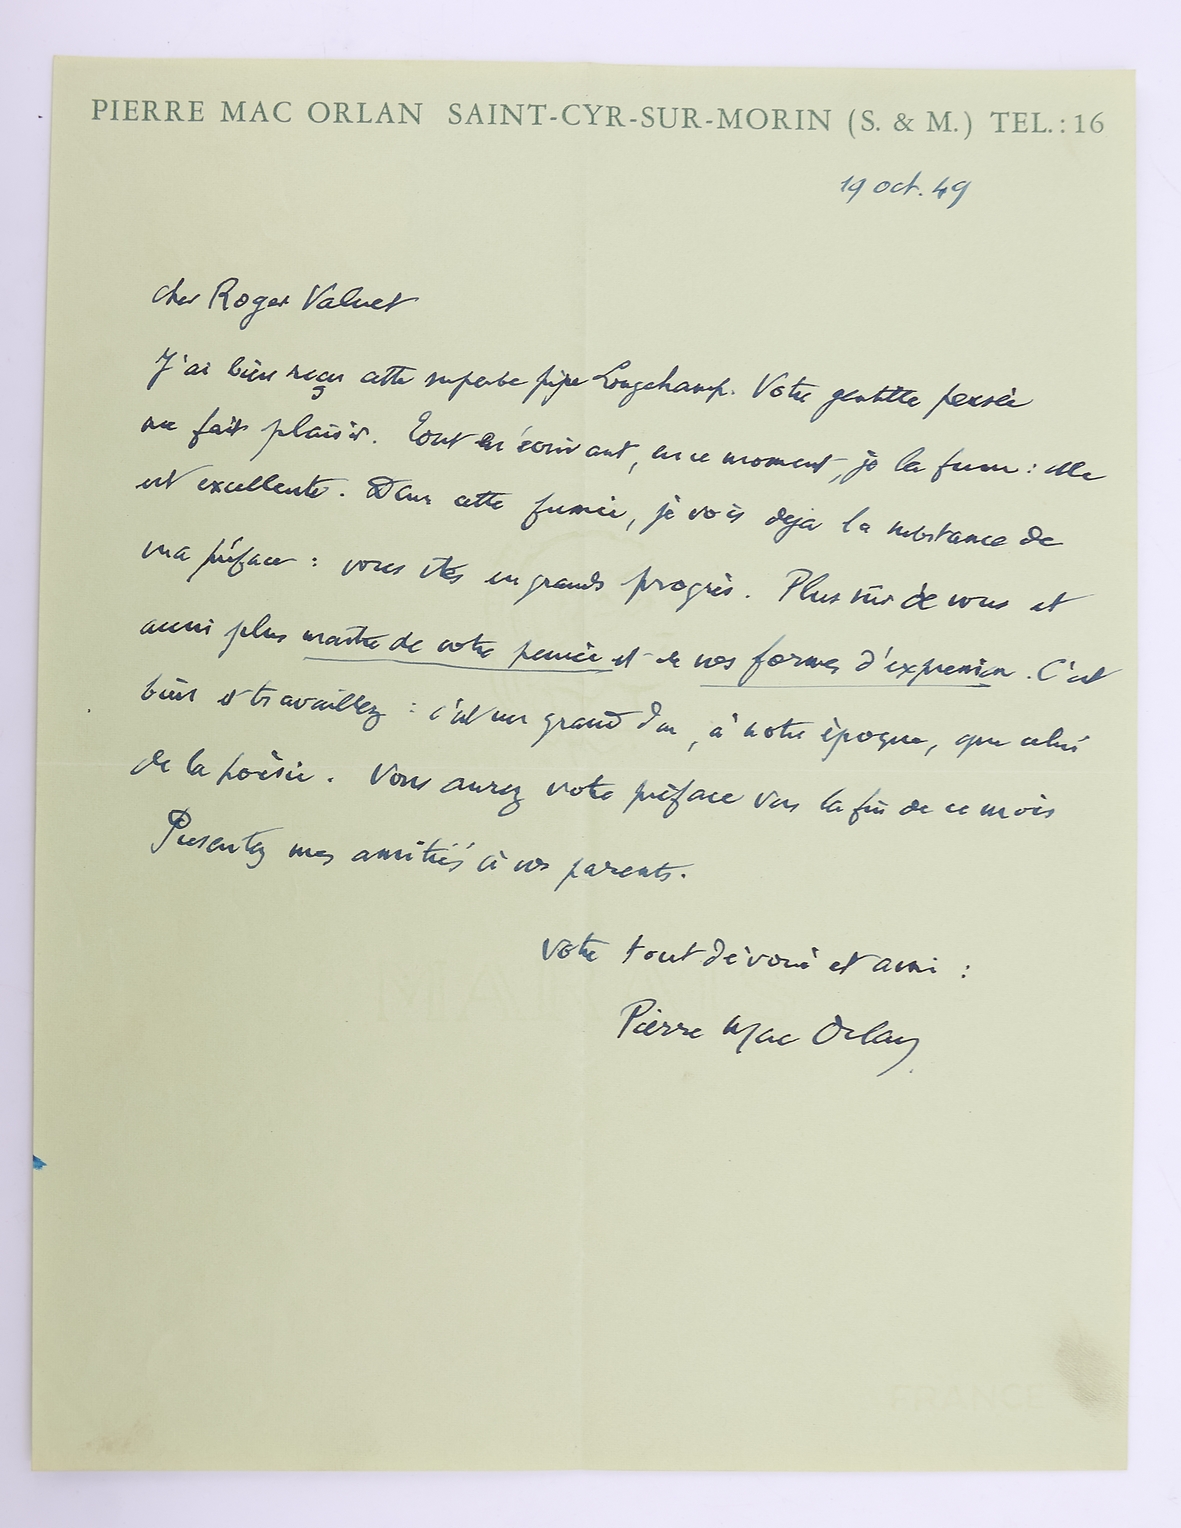 PIERRE MAC ORLAN SAINT-CYR-SUR-MORIN (S. & M.) TEL.: 16
19 oct. 49
cher Roger Valuet
J'ai bien reçu cette superbe pipe Longchamp. Votre gentille pensée
me fait plaisir. Tout en écrivant, en ce moment, je la fume : elle
est excellente. Dans cette fumée, je vois déja la substance de
ma préface : vous êtes en grands progrès. Plus sûr de vous et
aussi plus maître de votre pensée et de vos formes d'expression. C'est
bien et travaillez : c'est un grand don, à notre époque, que celui
de la poèsie. Vous aurez votre préface vers la fin de ce mois
Presentez mes amitiés à vos parents.
votre tout dévoué et ami :
Pierre Mac Orlan
MARAIS
FRANCE